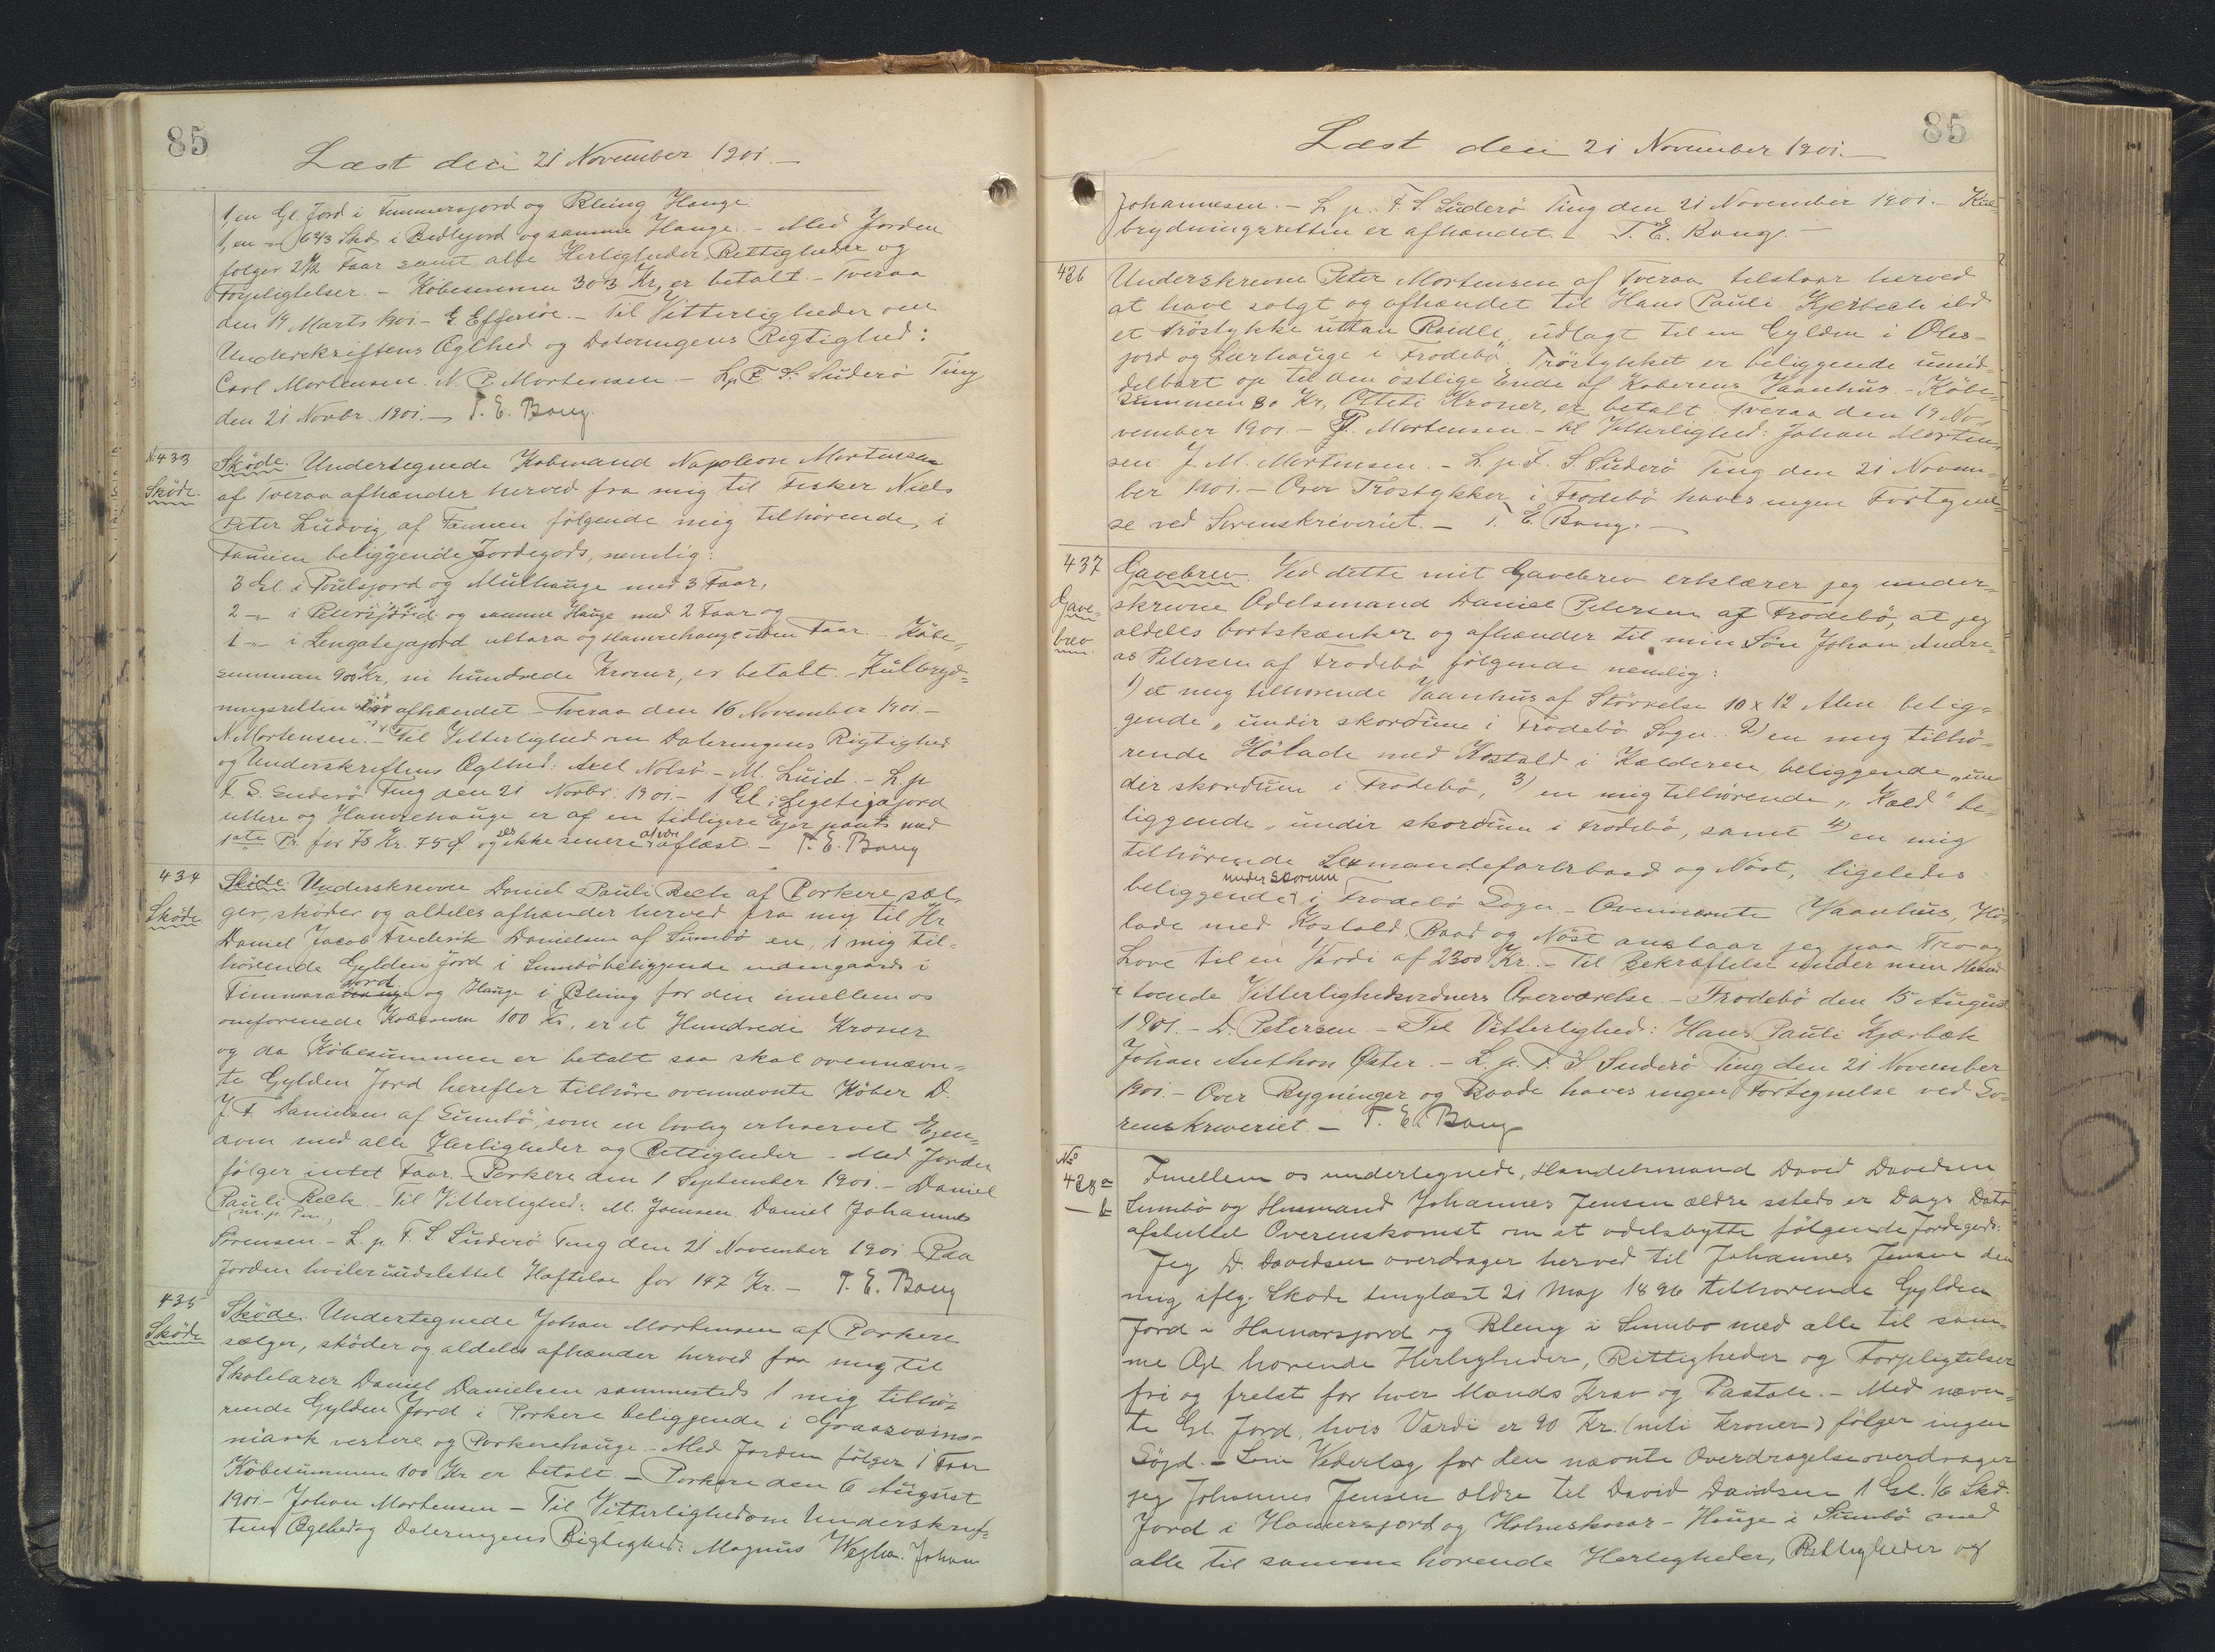 85
Læst den 21 November 1901.—
1, en Gl. Jord i Timmersjord og Kleing Hauge
1, en „ 6 2/3 Skd. i Bedlejord og samme Hauge. - Med Jorden
følger 2 1/2 Faar samt alle Herligheder Rettigheder og
Forpligtelser. - Købesummen 303 Kr, er betalt. - Tveraa
den 19 Marts 1901 - E Effersöe. - Til Vitterligheder om
Underskriftens Ægthed og Dateringens Rigtighed:
Carl Mortensen. N. P. Mortensen - L. p. F. S. Suderö Ting
den 21 Novbr. 1901. - T. E. Bang.
No 433
Skøde.
Skøde. Undertegnede Købmand Napoleon Mortensen
af Tveraa afhænder herved fra mig til Fisker Niels
Peter Ludvig af Famien følgende mig tilhørende, i
Famien beliggende Jordegods, nemlig:
3 Gl. i Poulsjord og Mulhauge med 3 Faar,
2 -"- i Peersjord og samme Hauge med 2 Faar og
1 -"- i Lengatejajord uttara og Hamrehauge uden Faar. Købe-
summen 900 Kr, ni hundrede Kroner, er betalt. - Kulbryd-
ningsretten er afhændet - Tveraa den 16 November 1901. -
N. Mortensen. - Til Vitterlighed om Dateringens Rigtighed
og Underskriftens Ægthed: Axel Nolsö - M. Luid. - L. p
F. S. Suderö Ting den 21 Novbr. 1901 - 1 Gl. i Legetigajord
uttere og Hamrehauge er af en tidligere Ejer pants med
1ste Pr. for 73 Kr. 75 Ø og ses ikke senere at være aflæst. - T. E. Bang
434
Skøde
Skøde. Underskrevne Daniel Pauli Bech af Porkere sæl-
ger, skøder og aldeles afhænder herved fra mig til Hr
Daniel Jacob Frederik Danielsen af Sumbö en, 1 mig til-
hörende Gylden Jord i Sumbö beliggende indengaards i
Timmara jord og Hauge i Kleing for den imellem os
omforenede Købesum 100 Kr, er et Hundrede Kroner
og da Købesummen er betalt saa skal ovennævn-
te Gylden Jord herefter tilhöre ovennævnte Köber D.
J. F. Danielsen af Sumbö, som en lovlig erhvervet Ejen-
dom med alle Herligheder og Rettigheder - Med Jorden
følger intet Faar. Porkere den 1 September 1901. - Daniel
Pauli Bech - Til Vitterlighed: M. Joensen. Daniel Johannes
m. p. Pen,
Sörensen - L. p. F. S Suderö Ting den 21 November 1901. Paa
Jorden hviler uudslettet Hæftelse for 147 Kr. - T. E. Bang
435
Skøde
Skøde. Undertegnede Johan Mortensen af Porkere
sælger, skøder og aldeles afhænder herved fra mig til
Skolelærer Daniel Danielsen sammesteds 1 mig tilhö-
rende Gylden Jord i Porkere beliggende i Graasvains-
niark vestere og Porkerehauge. - Med Jorden følger 1 Faar
Købesummen 100 Kr er betalt. - Porkere den 6 August
1901 - Johan Mortensen - Til Vitterlighed om Underskrif-
tens Ægthed og Dateringens Rigtighed: Magnus Wejhe. Johan
85
Læst den 21 November 1901.—
Johannesen. - L. p. F. S. Suderö Ting den 21 November 1901. - Kul-
brydningsretten er afhændet. - T. E. Bang. -
436
Underskrevne Peter Mortensen af Tveraa tilstaar herved
at have solgt og afhændet til Hans Pauli Kjerbech ibd
et Tröstykke uttan Reidle, udlagt til en Gylden i Oles-
jord og Lærhauge i Frodebö. Tröstykket er beliggende umid-
delbart op til den östlige Ende af Köberens Vaanhus. - Köbe-
summen 80 Kr, Otteti Kroner, er betalt. Tveraa den 19 No-
vember 1901 - P. Mortensen - til Vitterlighed: Johan Morten-
sen. J. M. Mortensen. - L. p. F. S. Suderö Ting den 21 Novem-
ber 1901. - Over Trostykker i Frodebö haves ingen Fortegnel-
se ved Sorenskriveriet. - T. E. Bang. -
437
Gave-
brev
Gavebrev. Ved dette mit Gavebrev erklærer jeg under-
skrevne Odelsmand Daniel Petersen af Frodebö, at jeg
aldeles bortskænker og afhænder til min Sön Johan Andre-
as Petersen af Frodebö følgende nemlig:
1) et mig tilhorende Vaanhus af Störrelse 10 x 12 Alen belig-
gende „undir skordum i Frodebö Sogn. 2) en mig tilhö-
rende Hölade med Kostald i Kælderen, beliggende „un
dir skordum i Frodebö, 3) en mig tilhörende „Kæld" be-
liggende „undir skordum i Frodebö, samt 4) en mig
tilhörende Sexmandefarerbaad og Nöst, ligeledes
beliggende under Skorum i Frodebö Sogn. - Ovennævnte Vaanhus, Hö-
lade med Kostald, Baad og Nöst anslaar jeg paa Tro og
Love til en Værdi af 2300 Kr. - Til Bekræftelse under min Haand
i tvende Vitterlighedsvidners Overværelse. - Frodebö den 15 August
1901. - D. Petersen - Til Vitterlighed: Hans Pauli Kjærbæk
Johan Anthon Øster. - L. p. F. S Suderö Ting den 21 November
1901. - Over Bygninger og Baade haves ingen Fortegnelse ved So-
renskriveriet. - T. E. Bang
No
438 a
— b
Imellem os undertegnede, Handelsmand David Davidsen
Sumbö og Husmand Johannes Jensen ældre ssteds er Dags Dato
afsluttet Overenskomst om at odelsbytte følgende Jordegods:
Jeg D. Davidsen overdrager herved til Johannes Jensen den
mig iflg. Skøde tinglæst 21 Maj 1896 tilhorende Gylden
Jord i Hamarsjord og Kleng i Sumbo med alle til sam-
me Gl. horende Herligheder, Rettigheder og Forpligtelser
fri og frelst for hver Mands Krav og Paatale. - Med nævn-
te Gl. Jord, hvis Værdi er 90 Kr. (niti Kroner) følger ingen
Söjd. - Som Vederlag for den nævnte Overdragelse overdrager
jeg Johannes Jensen ældre til David Davidsen 1 Gl. 1/6 Skd.
Jord i Hamersjord og Holmskorar-Hauge i Sumbö med
alle til samme horende Herligheder, Rettigheder og